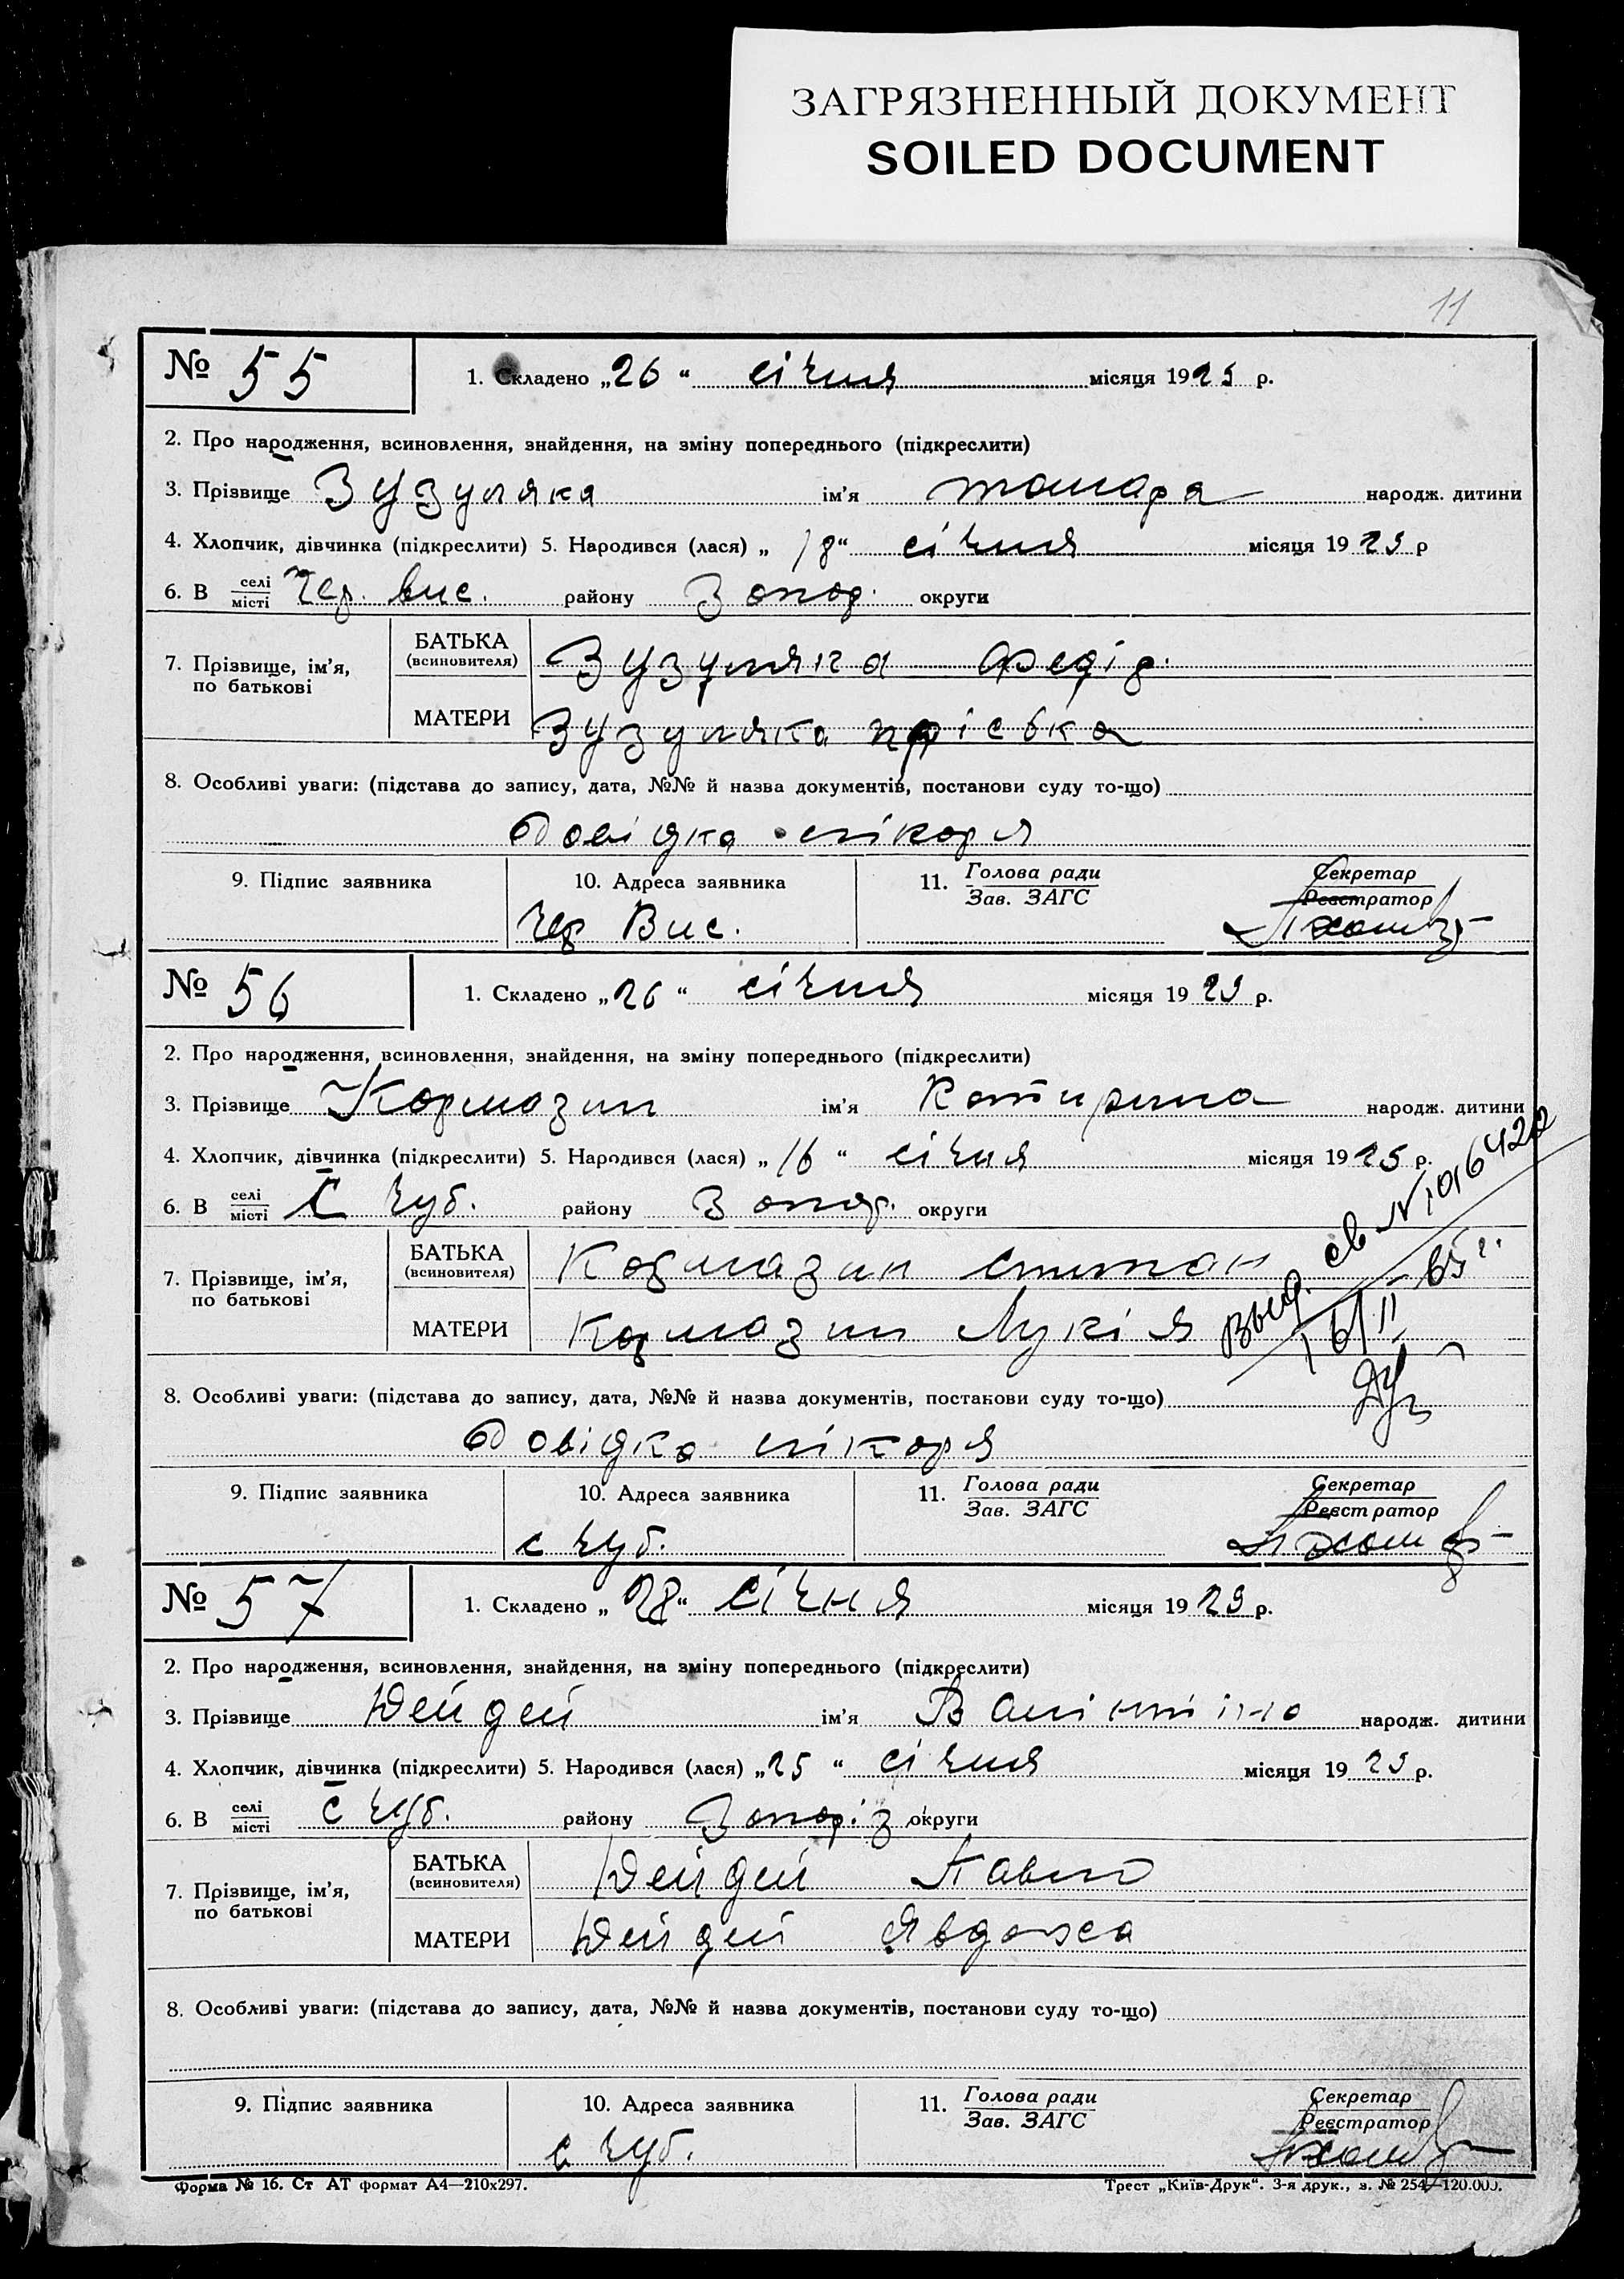 ЗАГРЯЗНЕННЫЙ ДОКУМЕНТ
SOILED DOCUMENT
11
№ 55
1. Складено „26“ січня місяця 1929 р.
2. Про народження, всиновлення, знайдення, на зміну попереднього (підкреслити)
3. Прізвище Зузуляка ім’я тамара народж. дитини
4. Хлопчик, дівчинка (підкреслити) 5. Народився (лася) „18“ січня місяця 1929 р
6. В селі/місті Чер. вис. району Запор. округи
7. Прізвище, ім’я, по батькові
БАТЬКА (всиновителя) Зузуляка Федір.
МАТЕРИ Зузуляка пріська
8. Особливі уваги: (підстава до запису, дата, №№ й назва документів, постанови суду то-що)
Довідка лікаря
9. Підпис заявника 10. Адреса заявника 11. Голова ради/Зав. ЗАГС Секретар/Реєстратор
Чер Вис.
№ 56
1. Складено „26“ січня місяця 1929 р.
2. Про народження, всиновлення, знайдення, на зміну попереднього (підкреслити)
3. Прізвище Кормазин ім’я Катирина народж. дитини
4. Хлопчик, дівчинка (підкреслити) 5. Народився (лася) „16“ січня місяця 1929 р.
6. В селі/місті С Чуб. району Запор. округи
7. Прізвище, ім’я, по батькові
БАТЬКА (всиновителя) Кормазин Степан
МАТЕРИ Кормазин Лукія
Выд. св №
65 г.
8. Особливі уваги: (підстава до запису, дата, №№ й назва документів, постанови суду то-що)
Довідка лікаря
9. Підпис заявника 10. Адреса заявника 11. Голова ради/Зав. ЗАГС Секретар/Реєстратор
с Чуб.
№ 57
1. Складено „28“ січня місяця 1929 р.
2. Про народження, всиновлення, знайдення, на зміну попереднього (підкреслити)
3. Прізвище Дейдей ім’я народж. дитини
4. Хлопчик, дівчинка (підкреслити) 5. Народився (лася) „25“ січня місяця 1929 р.
6. В селі/місті с Чуб. району Запоріз округи
7. Прізвище, ім’я, по батькові
БАТЬКА (всиновителя) Дейдей Павло
МАТЕРИ Дейдей Явдоха
8. Особливі уваги: (підстава до запису, дата, №№ й назва документів, постанови суду то-що)
9. Підпис заявника 10. Адреса заявника 11. Голова ради/Зав. ЗАГС Секретар/Реєстратор
с Чуб.
Форма № 16. Ст АТ формат А4—210x297. Трест „Київ-Друк“. 3-я друк., з. № 254—120.000.